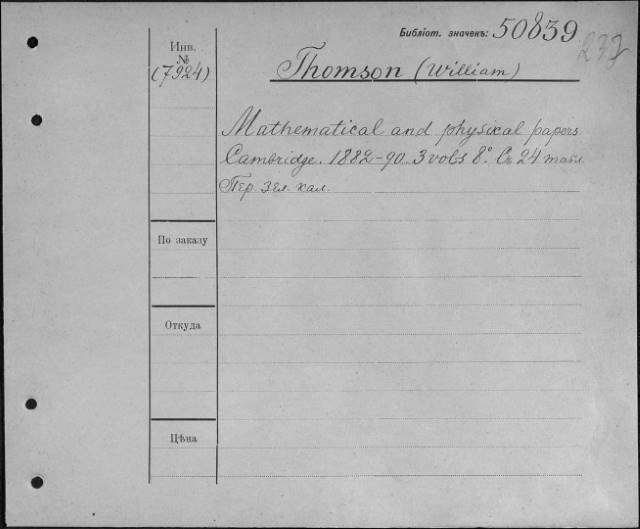 Библіот. значекъ: 50839
237
Инв.
№
(7924)
Thomson (William)
Mathematical and physical papers.
Cambridge. 1882-90. 3 vols 8°. Съ 24 табл.
Пер. зел. кал.
По заказу
Откуда
Цѣна